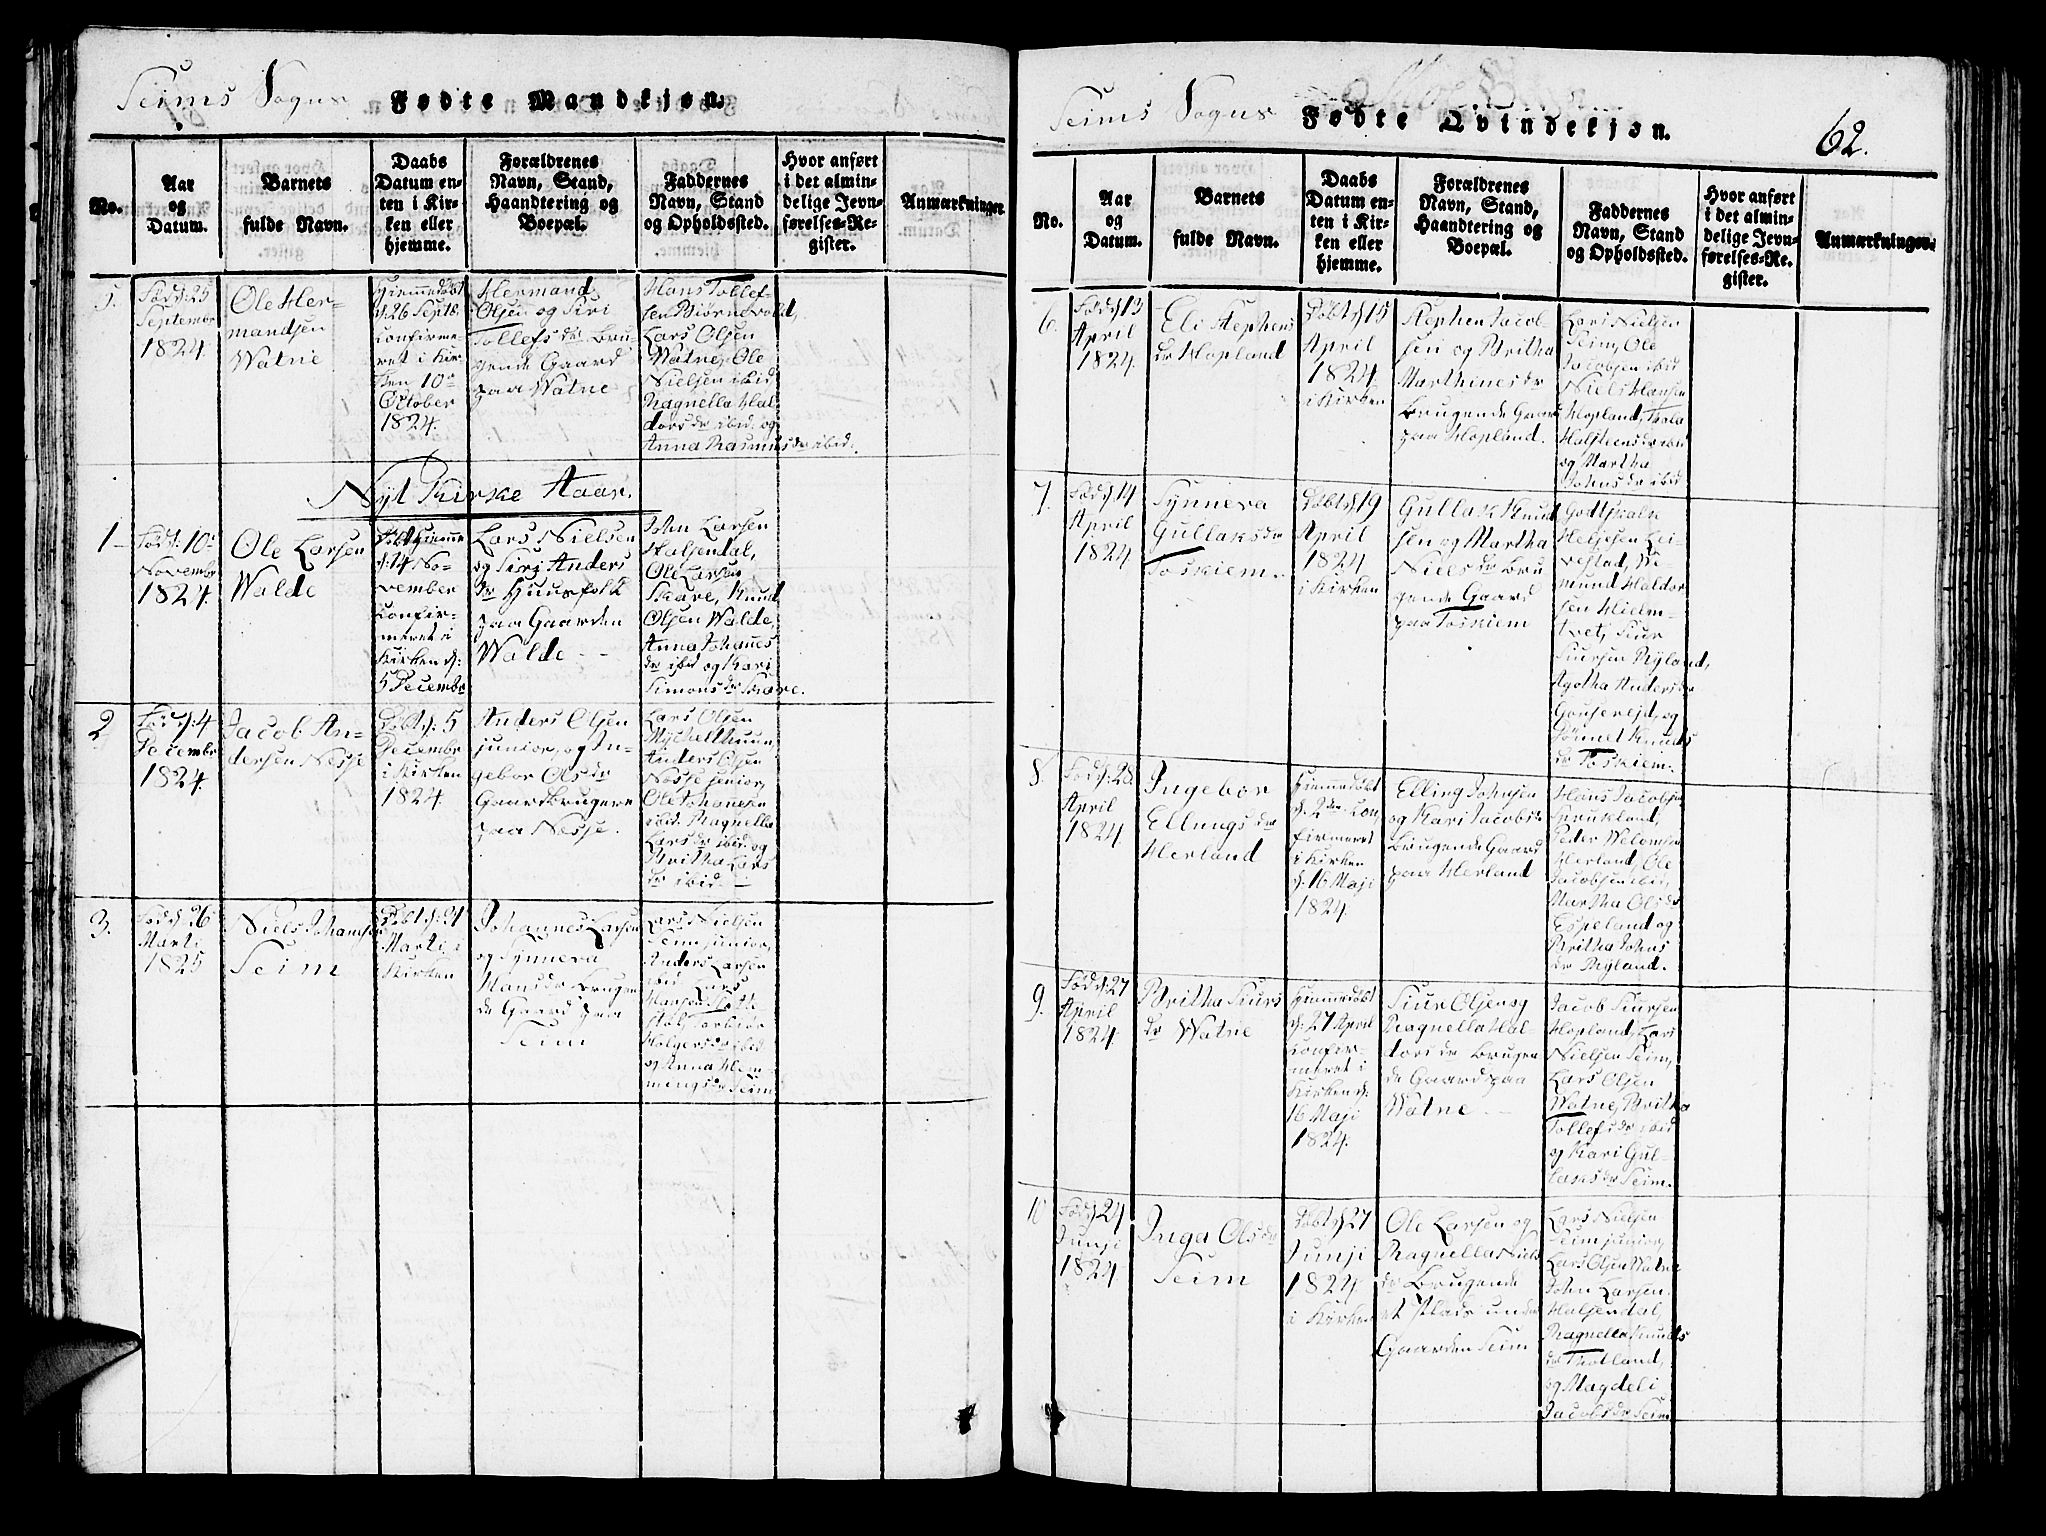 Seims Sogns Fødte Mandkjøn.
No.
Aar
og
Datum.
Barnets
fulde Navn.
Daabs
Datum en-
ten i Kir-
ken eller
hjemme.
Forældrenes
Navn, Stand,
Haandtering og
Boepæl.
Faddernes
Navn, Stand
og Opholdssted.
Hvor anført
i det almin-
delige Jevn-
førelses-Re-
gister.
Anmærkninger
5.
Fød d: 25
Septembr
1824.
Ole Her-
mandsen
Watne
Hjemmedøbt
d: 26 Septb.
Confirme-
ret i Kir-
ken 10de
October
1824.
Hermand
Olsen og Siri
Tollefs dr Bru-
gende Gaard
paa Watne
Hans Tollef-
sen Biørnevold,
Lars Olsen
Watne, Ole
Nielsen ibid
Ragnella Hal-
dors dr ibid. og
Anna Rasmus dr ibid.
Nyt Kirke Aar.
1
Fød d: 10de
Novembr
1824.
Ole Larsen
Walde
Døbt hjemme
d: 14 No-
vember
Confir-
meret i
Kirken d:
5 Decembr
Lars Nielsen
og Siri Anders
dr Huusfolk
paa Gaarden
Walde
John Larsen
Halsendal,
Ole Larsen
Skare, Knud
Olsen Walde,
Anna Johanes
dr ibid og Kari
Simons dr Skare.
2
Fød d: 4
Decembr
1824.
Jacob An-
dersen Nesse
Døbt d: 5
Decembr
i Kirken
1824.
Anders Olsen
junior, og In-
gebor Ols dr
Gaardbrugere
paa Nesse.
Lars Olsen
Mjchelthuun,
Anders Olsen
Nesse senior,
Ole Johansen
ibid. Ragnella
Lars dr ibid. og
Britha Lars
dr ibid.
3.
Fød d: 26
Marti
1825
Niels Johansen
Seim
Døbt d: 27
Marti, i
Kirken
Johannes Larsen
og Synneva
Hans dr Brugen
de Gaard paa
Seim
Lars Nielsen
Seim junior,
Anders Larsen
ibid Lars
Hansen
Holgers dr ibid
og Anna Hem-
mings dr Seim
Seims Sogns Fødte Qvindekjøn.
62.
No.
Aar
og
Datum.
Barnets
fulde Navn.
Daabs
Datum en-
ten i Kir-
ken eller
hjemme.
Forældrenes
Navn, Stand,
Haandtering og
Boepæl.
Faddernes
Navn, Stand
og Opholdssted.
Hvor anført
i det almin-
delige Jevn-
førelses-Re-
gister.
Anmærkninger.
6.
Fød d: 13
April
1824.
Eli Stephens
dr Hopland
Døbt d: 15
April
1824.
i Kirken
Stephen Jacob-
sen og Britha
Marthines dr
Brugende Gaard
paa Hopland.
Lars Nielsen
Seim, Ole
Jacobsen ibid
Niels Hansen
Hopland,
Halsteens dr ibid
og Martha
Johns dr ibid
7.
Fød d: 14
April
1824
Synneva
Gullaks dr
Toskiem.
Døbt d: 19
April
1824
i Kirken
Gullak Knud
sen og Martha
Niels dr Bru
gende Gaard
paa Toskiem
Godtskalk
Heljesen Lei-
restad,
mund Haldor
sen Hielm-
tvet, Siur
Siursen Ryland,
Agotha Anders dr
og
Knuds
dr Toskiem.
8
Fød d: 28
April
1824
Ingebor
Ellings dr
Herland
Hjemmedøbt
d: 2den Con
firmeret
i Kirken
d: 16 Maji
1824.
Elling Johnsen
og Kari Jacobs dr
Brugende Gaard
paa Herland
Hans Jacobsen
Peder
Herland, Ole
Jacobsen ibid,
Martha Ols dr
Espeland og
Britha Johns
dr Ryland.
9.
Fød d: 27
April
1824.
Britha Siurs
dr Watne
Hjemmedøbt
d: 27 April
Confir-
meret i
Kirken d:
16 Maji
1824.
Siur Olsen og
Ragnella Hal-
dors dr Brugen
de Gaard paa
Watne
Jacob Siursen
Hopland, Lars
Nielsen Seim,
Lars Olsen
Watne, Britha
Tollefs dr ibid
og Kari Gul-
laks dr Seim.
10
Fød d: 24
Junji
1824
Inga Ols dr
Seim
Døbt d: 27
Junji
1824
i Kirken
Ole Larsen og
Ragnella Niels
dr Brugende
et Plads under
Gaarden Seim
Lars Nielsen
Seim junior,
Lars Olsen Watne
John Larsen
Halsendal,
Ragnella Knuds
dr
og Magdeli
Jacobs dr Seim